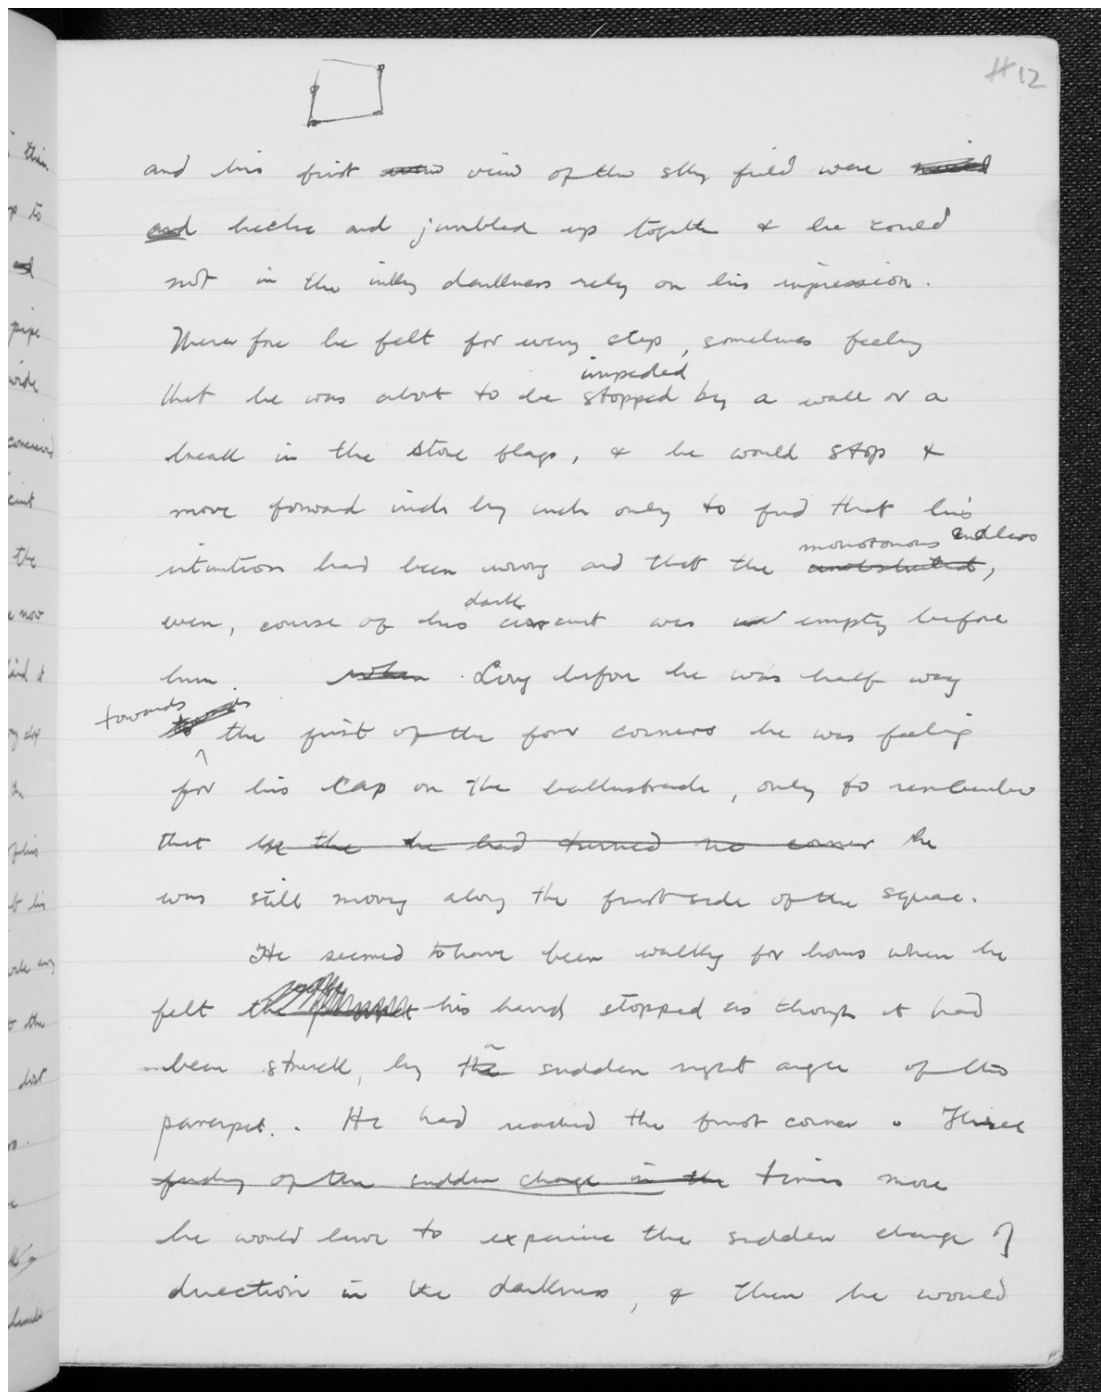 #12
and his first view view of the sky field were mixed
and hectic and jumbled up together & he could
not in the inky darkness rely on his impression.
Therefore he felt for every step, sometimes feeling
impeded
that he was about to be stopped by a wall or a
break in the stone flags, & he would stop &
move forward inch by inch only to find that his
monotonous endless
intuition had been wrong and that the unobstructed,
dark
even, course of his circuit was empty before
him when. Long before he was half way
towards
to the first of the four corners he was feeling
for his cap on the ballustrade, only to remember
that he the he had turned no corner he
was still moving along the first side of the square.
He seemed to have been walking for hours when he
felt the his hand stopped as though it had
a
been struck, by the sudden right angle of the
parapet. He had reached the first corner. Three
finding of the sudden change in the times more
he would have to experience the sudden change of
direction in the darkness, & then he would